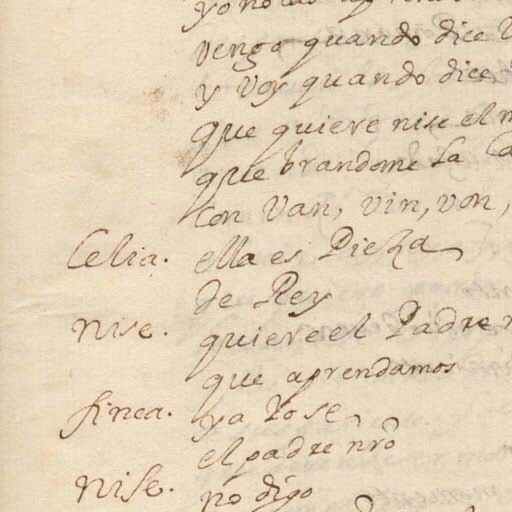 yo no las
vengo quando dice
y voy quando dice
que quiere nise el
que brandome la
Con Van, vin, von,
Celia. ella es Pieza
de Rey
nise. quiere el Padre
que aprendamos
finea. ya yo se
el padre nro
nise. no digo